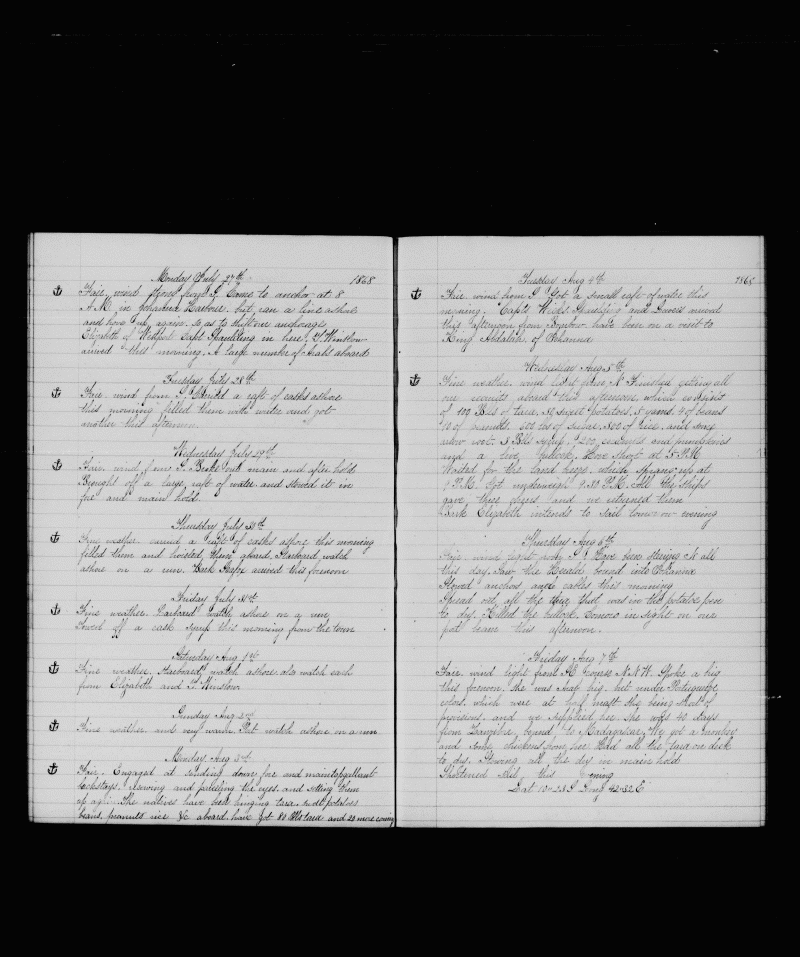 Monday July 27th 1868
Fair, wind from S. Came to anchor at 8
A.M. in Johanna Harbore, but ran a line ashore
and hove up again so as to shift our anchorage
Elizabeth of Westport Capt Spaulding in here. G. Winslow
arrived this morning. A large number of Arabs aboard
Tuesday July 28th
Fair, wind from S. a raft of casks ashore
this morning filled them with water and got
another this afternoon.
Wednesday July 29th
Fair, wind from S. Broke out main and after hold.
Brought off a large raft of water and stowed it in
fore and main hold.
Thursday July 30th
Fine weather carried a raft of casks ashore this morning
filled them and hoisted them aboard. Starboard watch
ashore on a run. Bark arrived this forenoon
Friday July 31st
Fine weather. Larboard watch ashore on a run
Towed off a cask this morning from the town
Saturday Aug 1st
Fine weather. Starboard watch ashore also watch each
from Elizabeth and G. Winslow
Sunday Aug 2nd
Fine weather and very warm. Port watch ashore on a run
Monday Aug 3rd
Fair. Engaged at sending down fore and maintopgallant
backstays, serving and parceling the eyes and setting them
up again. The natives have been bringing tara, sweet potatoes
beans, peanuts rice &c aboard, have got 80 Bbls tara and 20 more coming
Tuesday Aug 4th 1868
Fair, wind from S. Got a small raft of water this
morning. Capts Wicks, Spaulding and arrived
this afternoon from have been on a visit to
King Abdalah, of Johanna
Wednesday Aug 5th
Fine weather, wind light from N. Finished getting all
our recruits aboard this afternoon, which consists
of 100 Bbls of tara, 50 sweet potatoes, 5 yams, 4 of beans
10 of peanuts, 500 lbs of 500 of rice, and some
arrow root. 3 Bbls syrup, 1200 cocoanuts and pumpkins
and a live bullock. Hove short at P.M.
Waited for the land breeze, which sprang up at
9 P.M. Got underweigh 9.30 P.M. All the ships
gave three cheers and we returned them
Bark Elizabeth intends to sail tomorrow evening
Thursday Aug 6th
Fair, wind light from S. Have been steering N. all
this day. Saw the Herald bound into Johanna
Stowed anchors and cables this morning
Spread out all the that was in the potatoe pen
to dry. Killed the bullock. Comoro in sight on our
port beam this afternoon.
Friday Aug 7th
Fair, wind light from course N.N.W. Spoke a brig
this forenoon. She was Arab brig, but under Portuguese
colors, which were at half mast she being short of
provisions, and we supplied her. She was 40 days
from Zanzibar, bound to Madagascar. We got a monkey
and some chickens from her. Had all the tara on deck
to dry. Stowing all the dry in main hold
Shortened sail this evening
Lat 10-28 S Long 42-32 E